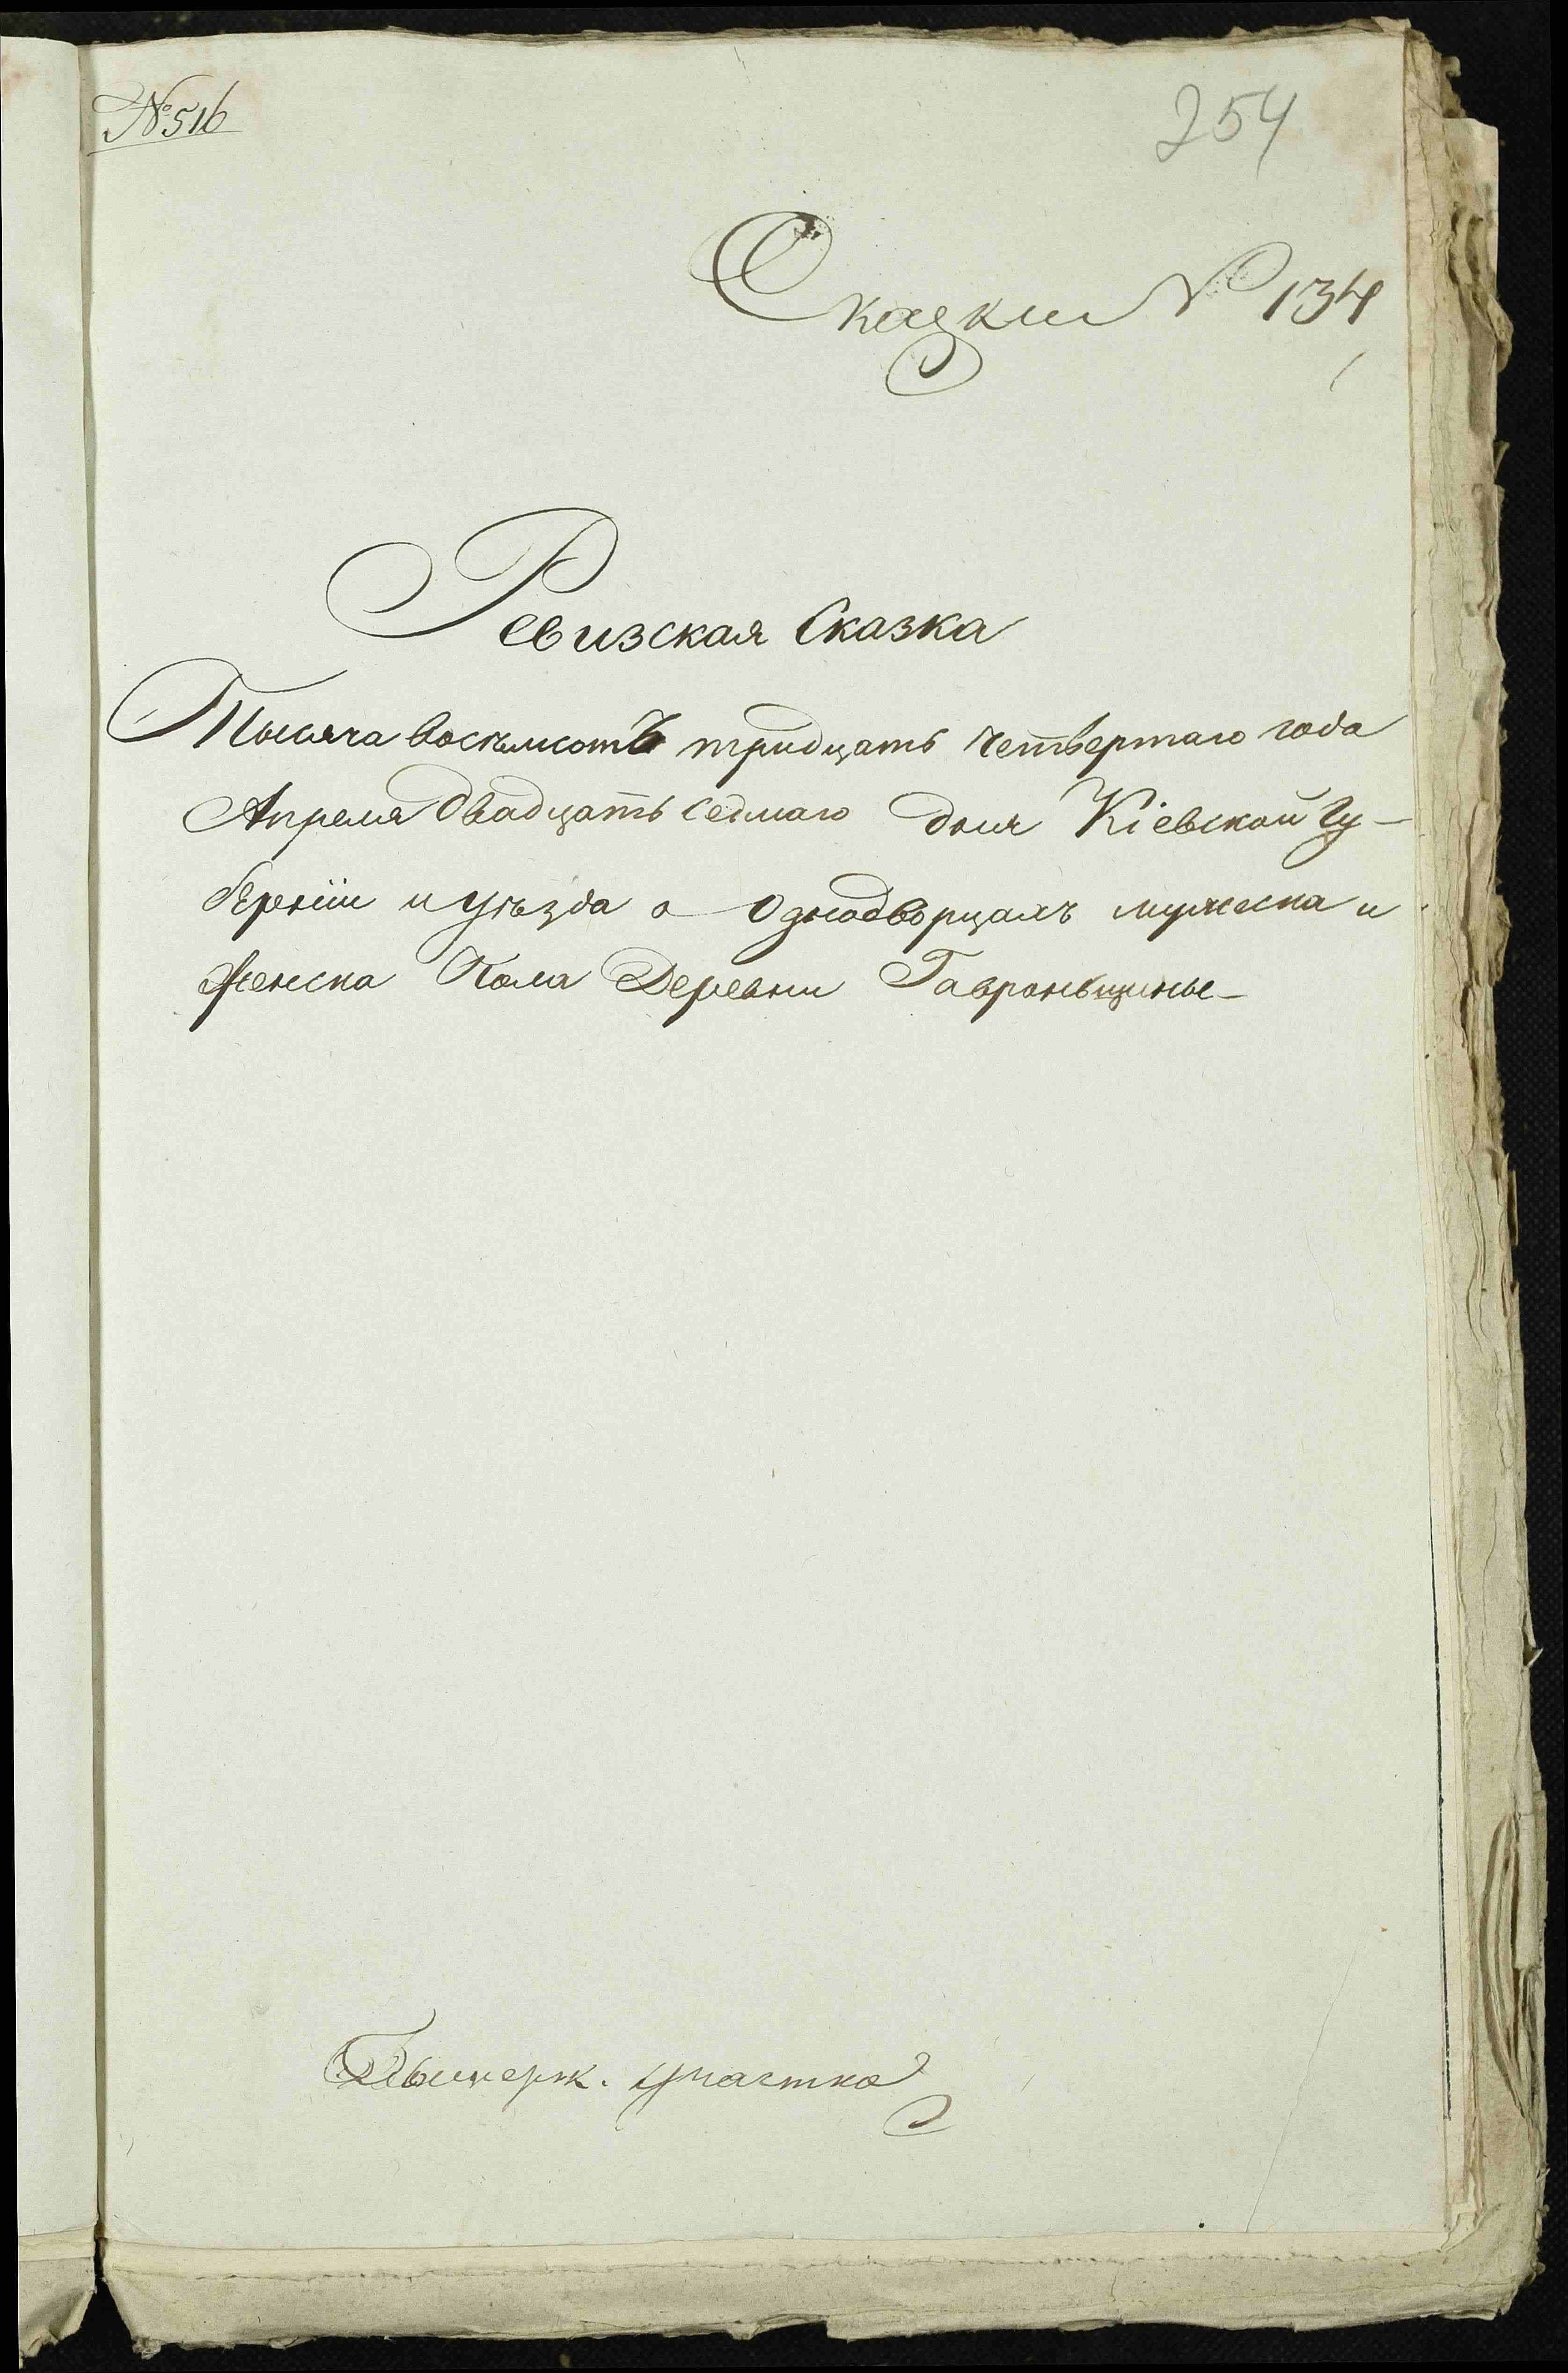 № 516
254
Сказки № 134
Ревизская Сказка
Тысяча восемьсотъ тридцать четвертаго года
Апреля двадцать седмаго дня Кіевской Гу-
берніи и уѣзда о Однодворцахъ мужеска и
женска Пола Деревни Гавроньщины
участка